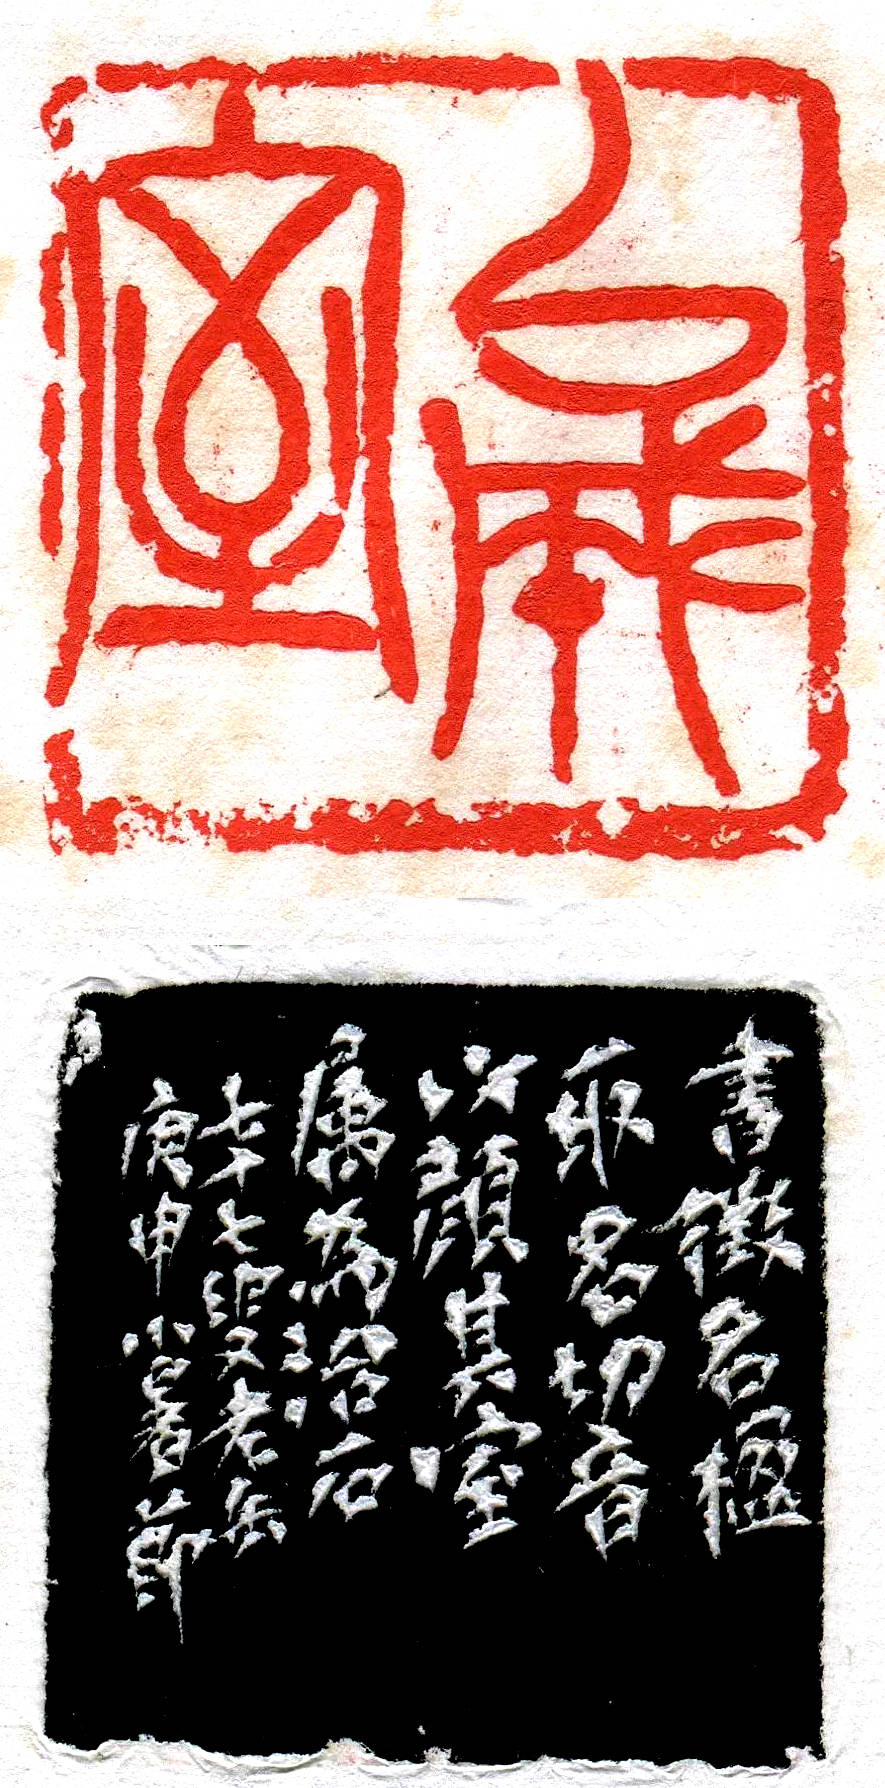 室
書徵名楹
取名切音
以顏其室
屬為治石
七十七叟老缶
庚申小暑節